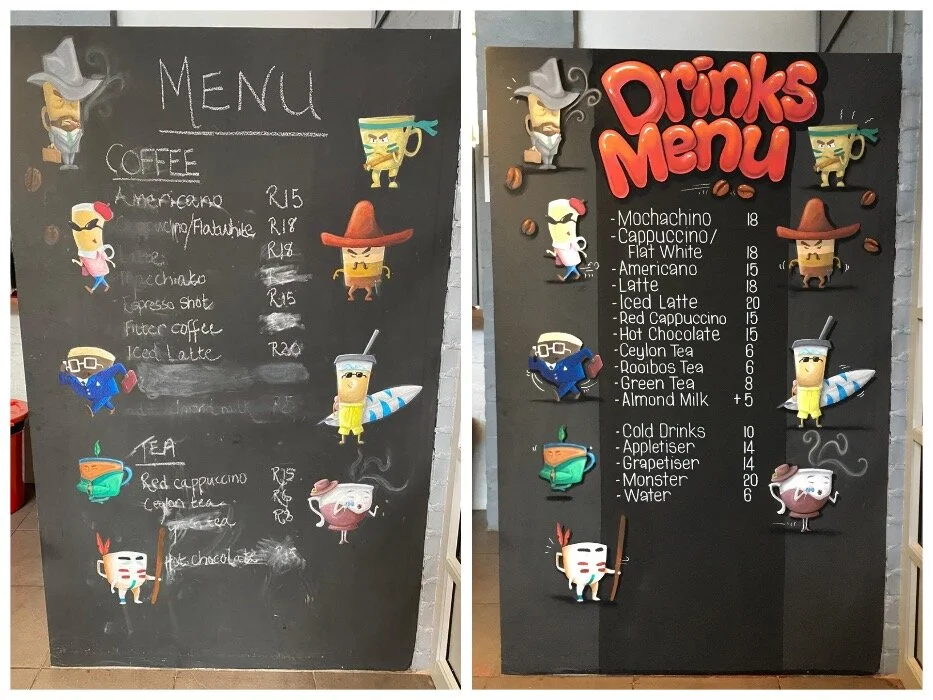 MENU
COFFEE
Americano R15
/Flatwhite R18
R18
Macchiato
Espresso shot R15
Filter coffee
Iced Latte R20
R5
TEA
Red cappuccino R15
Ceylon tea
tea R8
Hot chocolate
Drinks
Menu
-Mochachino 18
-Cappuccino/
Flat White 18
-Americano 15
-Latte 18
-Iced Latte 20
-Red Cappuccino 15
-Hot Chocolate 15
-Ceylon Tea 6
-Rooibos Tea 6
-Green Tea 8
-Almond Milk +5
-Cold Drinks 10
-Appletiser 14
-Grapetiser 14
-Monster 20
-Water 6